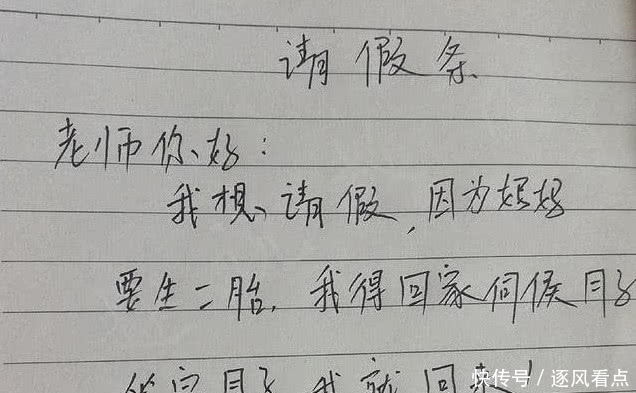 请假条
老师你好:
我想请假,因为妈妈
要生二胎,我得回家伺候月子
做完月子我就回来!
快传号/逐风看点